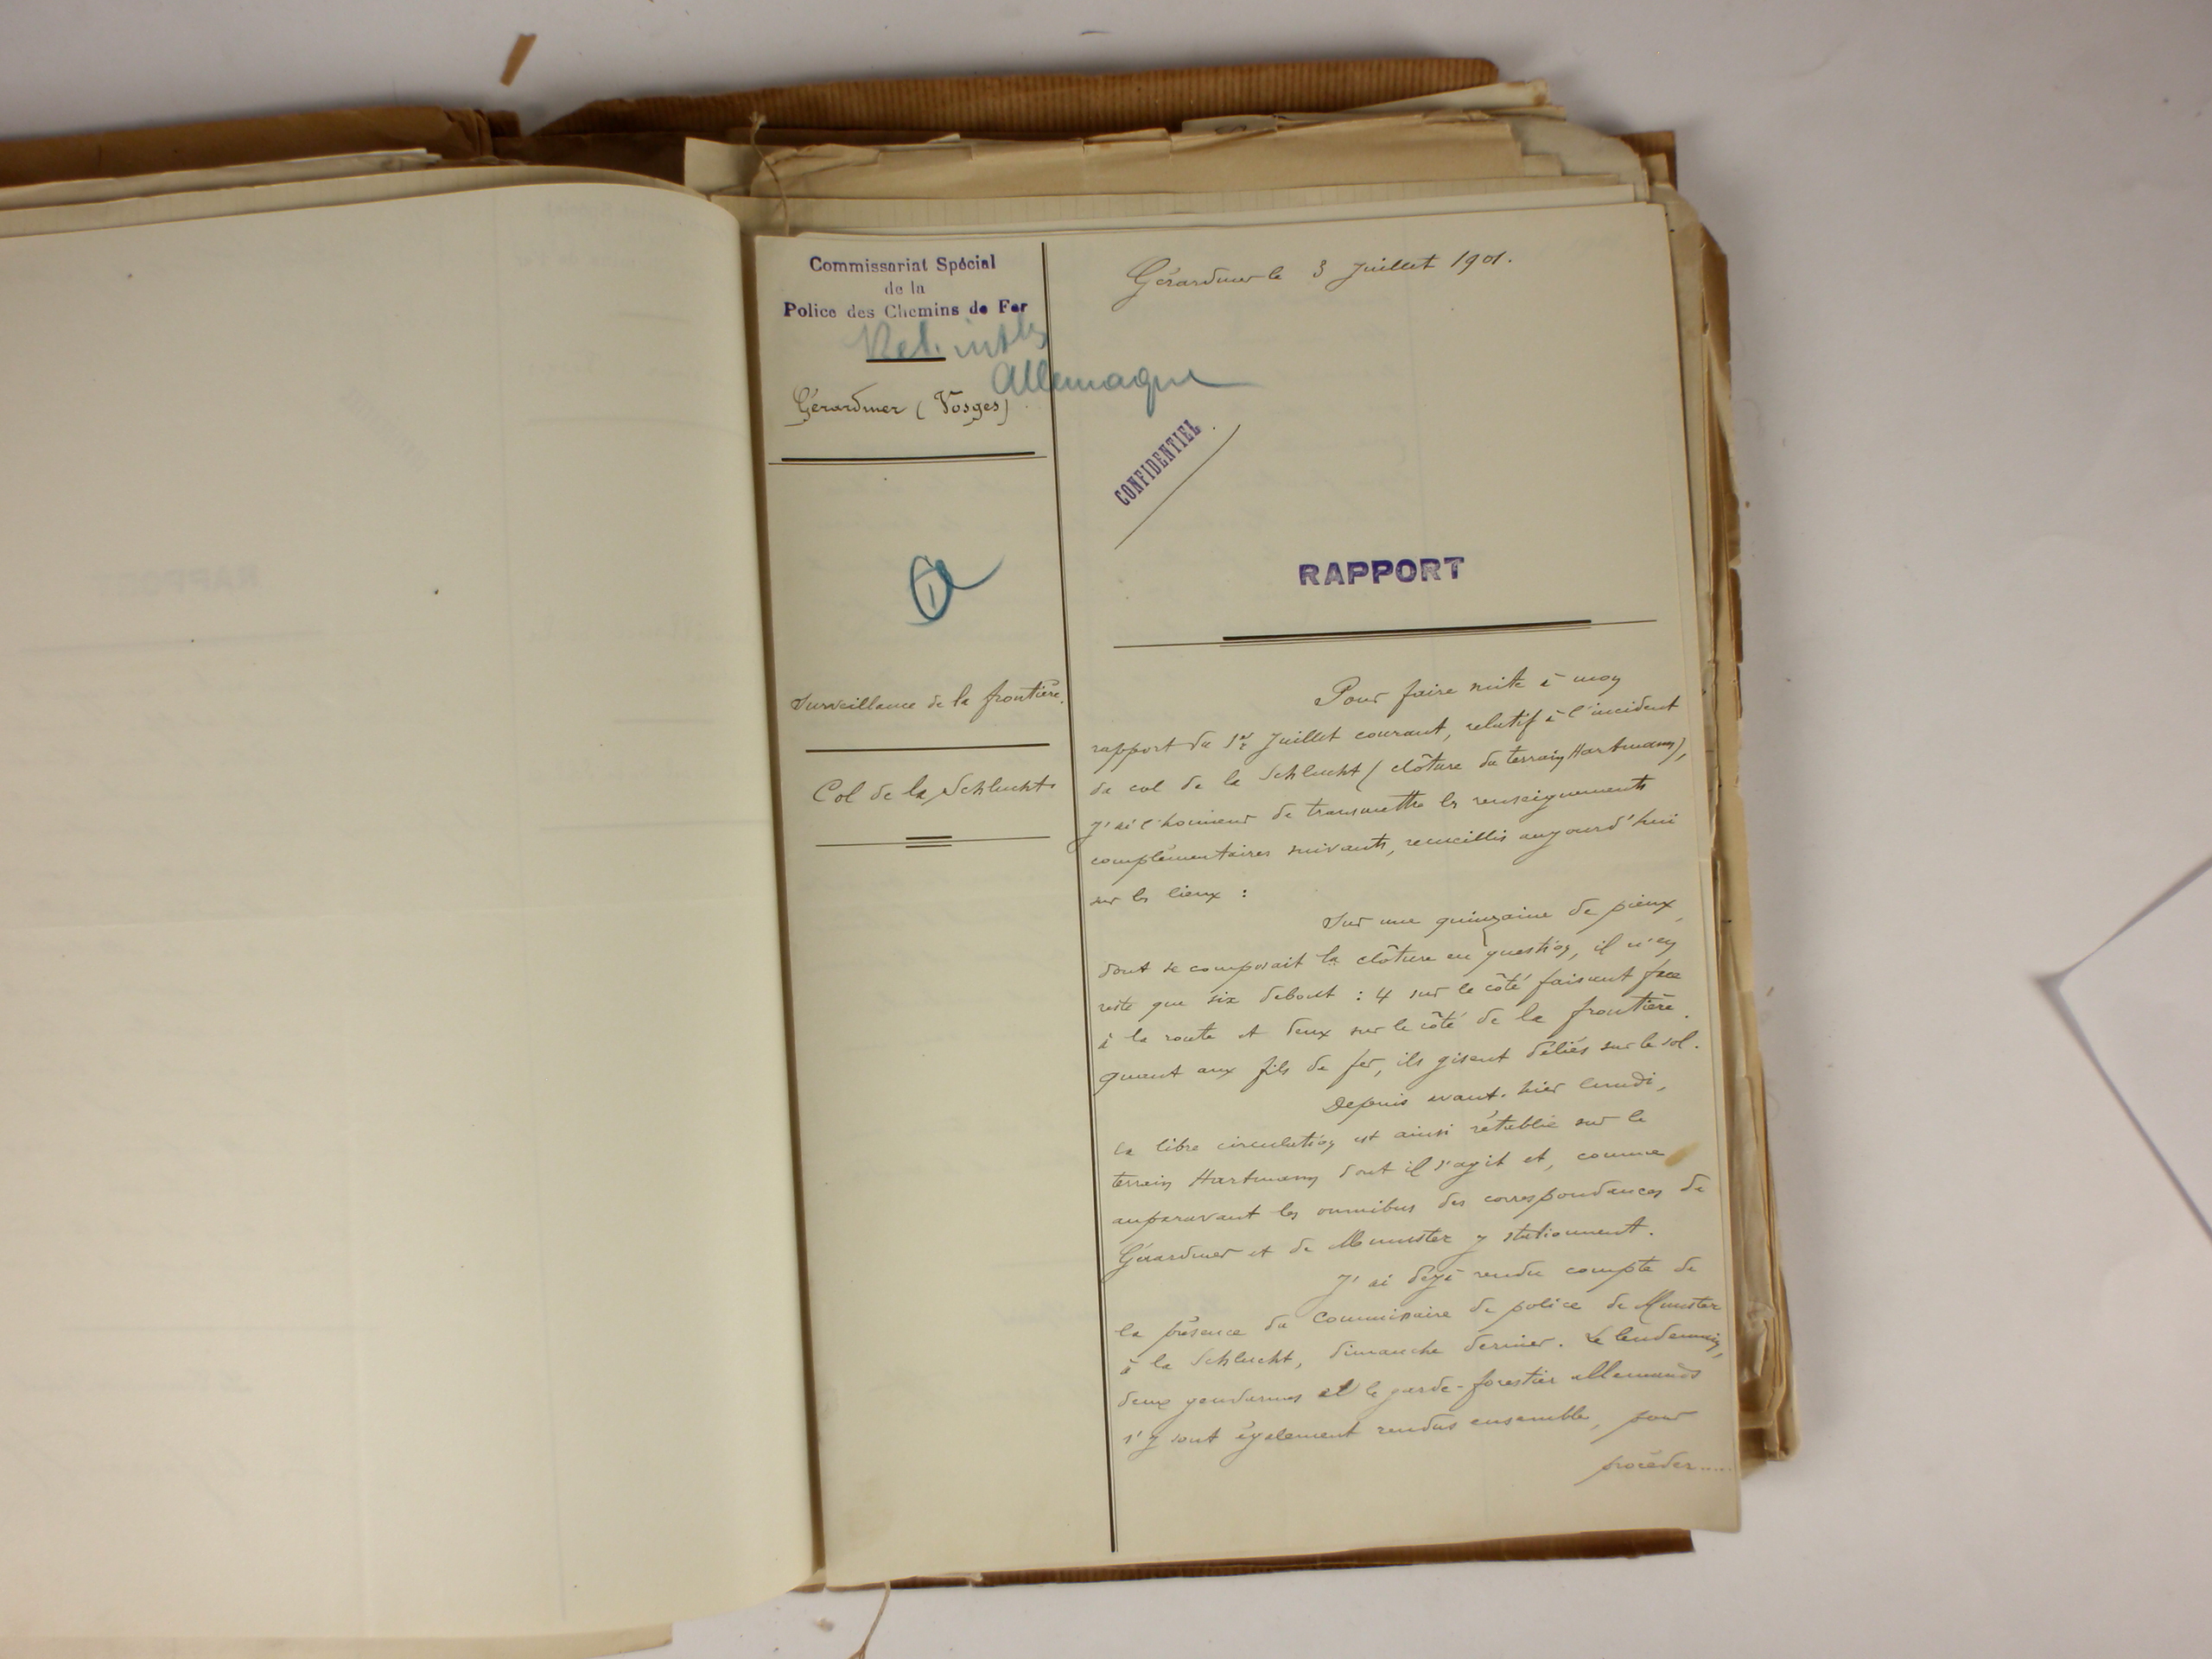 Commissariat Spécial
de la
Police des Chemins de Fer
Allemagne
Gérardmer (Vosges)
Surveillance de la frontière.
Col de la Schlucht.
Gérardmer le 3 Juillet 1901.
CONFIDENTIEL
RAPPORT
Pour faire suite à mon
rapport du 1er Juillet courant, relatif à l'incident
du col de la Schlucht (clôture du terrain Hartmann),
j'ai l'honneur de transmettre les renseignements
complémentaires suivants, recueillis aujourd'hui
sur les lieux :
Sur une quinzaine de pieux,
dont se composait la clôture en question, il n'en
reste que six debout : 4 sur le côté faisant face
à la route et deux sur le côté de la frontière.
Quant aux fils de fer, ils gisent déliés sur le sol.
Depuis avant-hier lundi,
la libre circulation est ainsi rétablie sur le
terrain Hartmann dont il s'agit et, comme
auparavant les omnibus des correspondances de
Gérardmer et de Munster y stationnent.
J'ai déjà rendu compte de
la présence du Commissaire de police de Munster
à la Schlucht, dimanche dernier. Le lendemain,
deux gendarmes et le garde-forestier allemands
s'y sont également rendus ensemble, pour
procéder.....